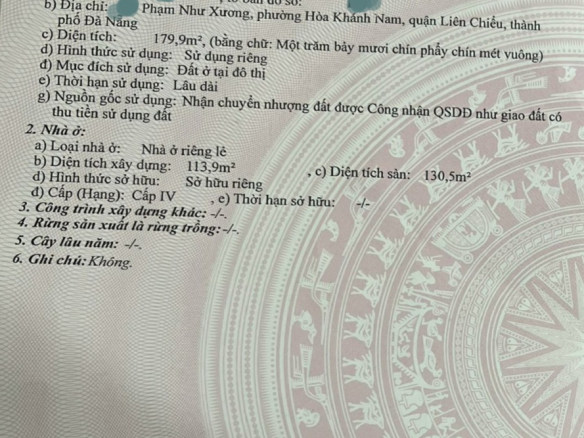 b) Địa chỉ: Phạm Như Xương, phường Hòa Khánh Nam, quận Liên Chiểu, thành
phố Đà Nẵng
c) Diện tích: 179,9m², (bằng chữ: Một trăm bảy mươi chín phẩy chín mét vuông)
d) Hình thức sử dụng: Sử dụng riêng
đ) Mục đích sử dụng: Đất ở tại đô thị
e) Thời hạn sử dụng: Lâu dài
g) Nguồn gốc sử dụng: Nhận chuyển nhượng đất được Công nhận QSDĐ như giao đất có
thu tiền sử dụng đất
2. Nhà ở:
a) Loại nhà ở: Nhà ở riêng lẻ
b) Diện tích xây dựng: 113,9m² , c) Diện tích sàn: 130,5m²
d) Hình thức sở hữu: Sở hữu riêng
đ) Cấp (Hạng): Cấp IV , e) Thời hạn sở hữu: -/-
3. Công trình xây dựng khác: -/-.
4. Rừng sản xuất là rừng trồng: -/-.
5. Cây lâu năm: -/-.
6. Ghi chú: Không.